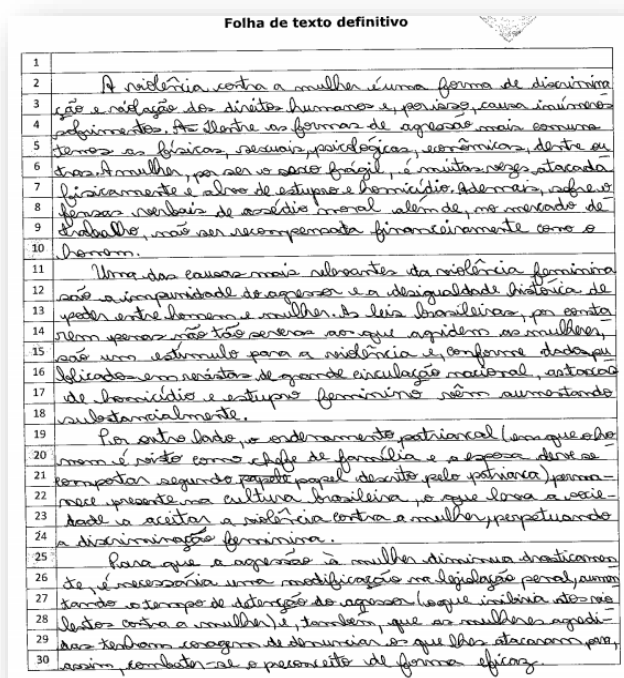 Folha de texto definitivo
1
2 A violência contra a mulher é uma forma de discrimina
3 ção e violação dos direitos humanos e, por isso, causa inúmeros
4 sofrimentos. As Dentre as formas de agressão mais comuns
5 temos as físicas, sexuais, psicológicas, econômicas, dentre ou
6 tras. A mulher, por ser o sexo frágil, é muitas vezes atacada
7 fisicamente e alvo de estupro e homicídio. Ademais, sofre o
8 fensas verbais de assédio moral além de, no mercado de
9 trabalho, não ser recompensada financeiramente como o
10 homem.
11 Uma das causas mais relevantes da violência feminina
12 são a impunidade do agressor e a desigualdade histórica de
13 poder entre homem e mulher. As leis brasileiras, por conte
14 rem penas não tão severas aos que agridem as mulheres,
15 são um estímulo para a violência e, conforme dados pu
16 blicados em revistas de grande circulação nacional, as taxas
17 de homicídio e estupro feminino vêm aumentando
18 substancialmente.
19 Por outro lado, o ordenamento patriarcal (em que o ho
20 mem é visto como chefe de família e a esposa deve se
21 comportar segundo papel descrito pelo patriarca) perma-
22 nece presente na cultura brasileira, o que leva a socie-
23 dade a aceitar a violência contra a mulher, perpetuando
24 a discriminação feminina.
25 Para que a agressão à mulher diminua drasticamen
26 te, é necessária uma modificação na legislação penal, aumen
27 tando o tempo de detenção do agressor (o que inibiria atos vio
28 lentos contra a mulher) e, também, que as mulheres agredi-
29 das tenham coragem de denunciar os que lhes atacaram para,
30 assim, combater-se o preconceito de forma eficaz.